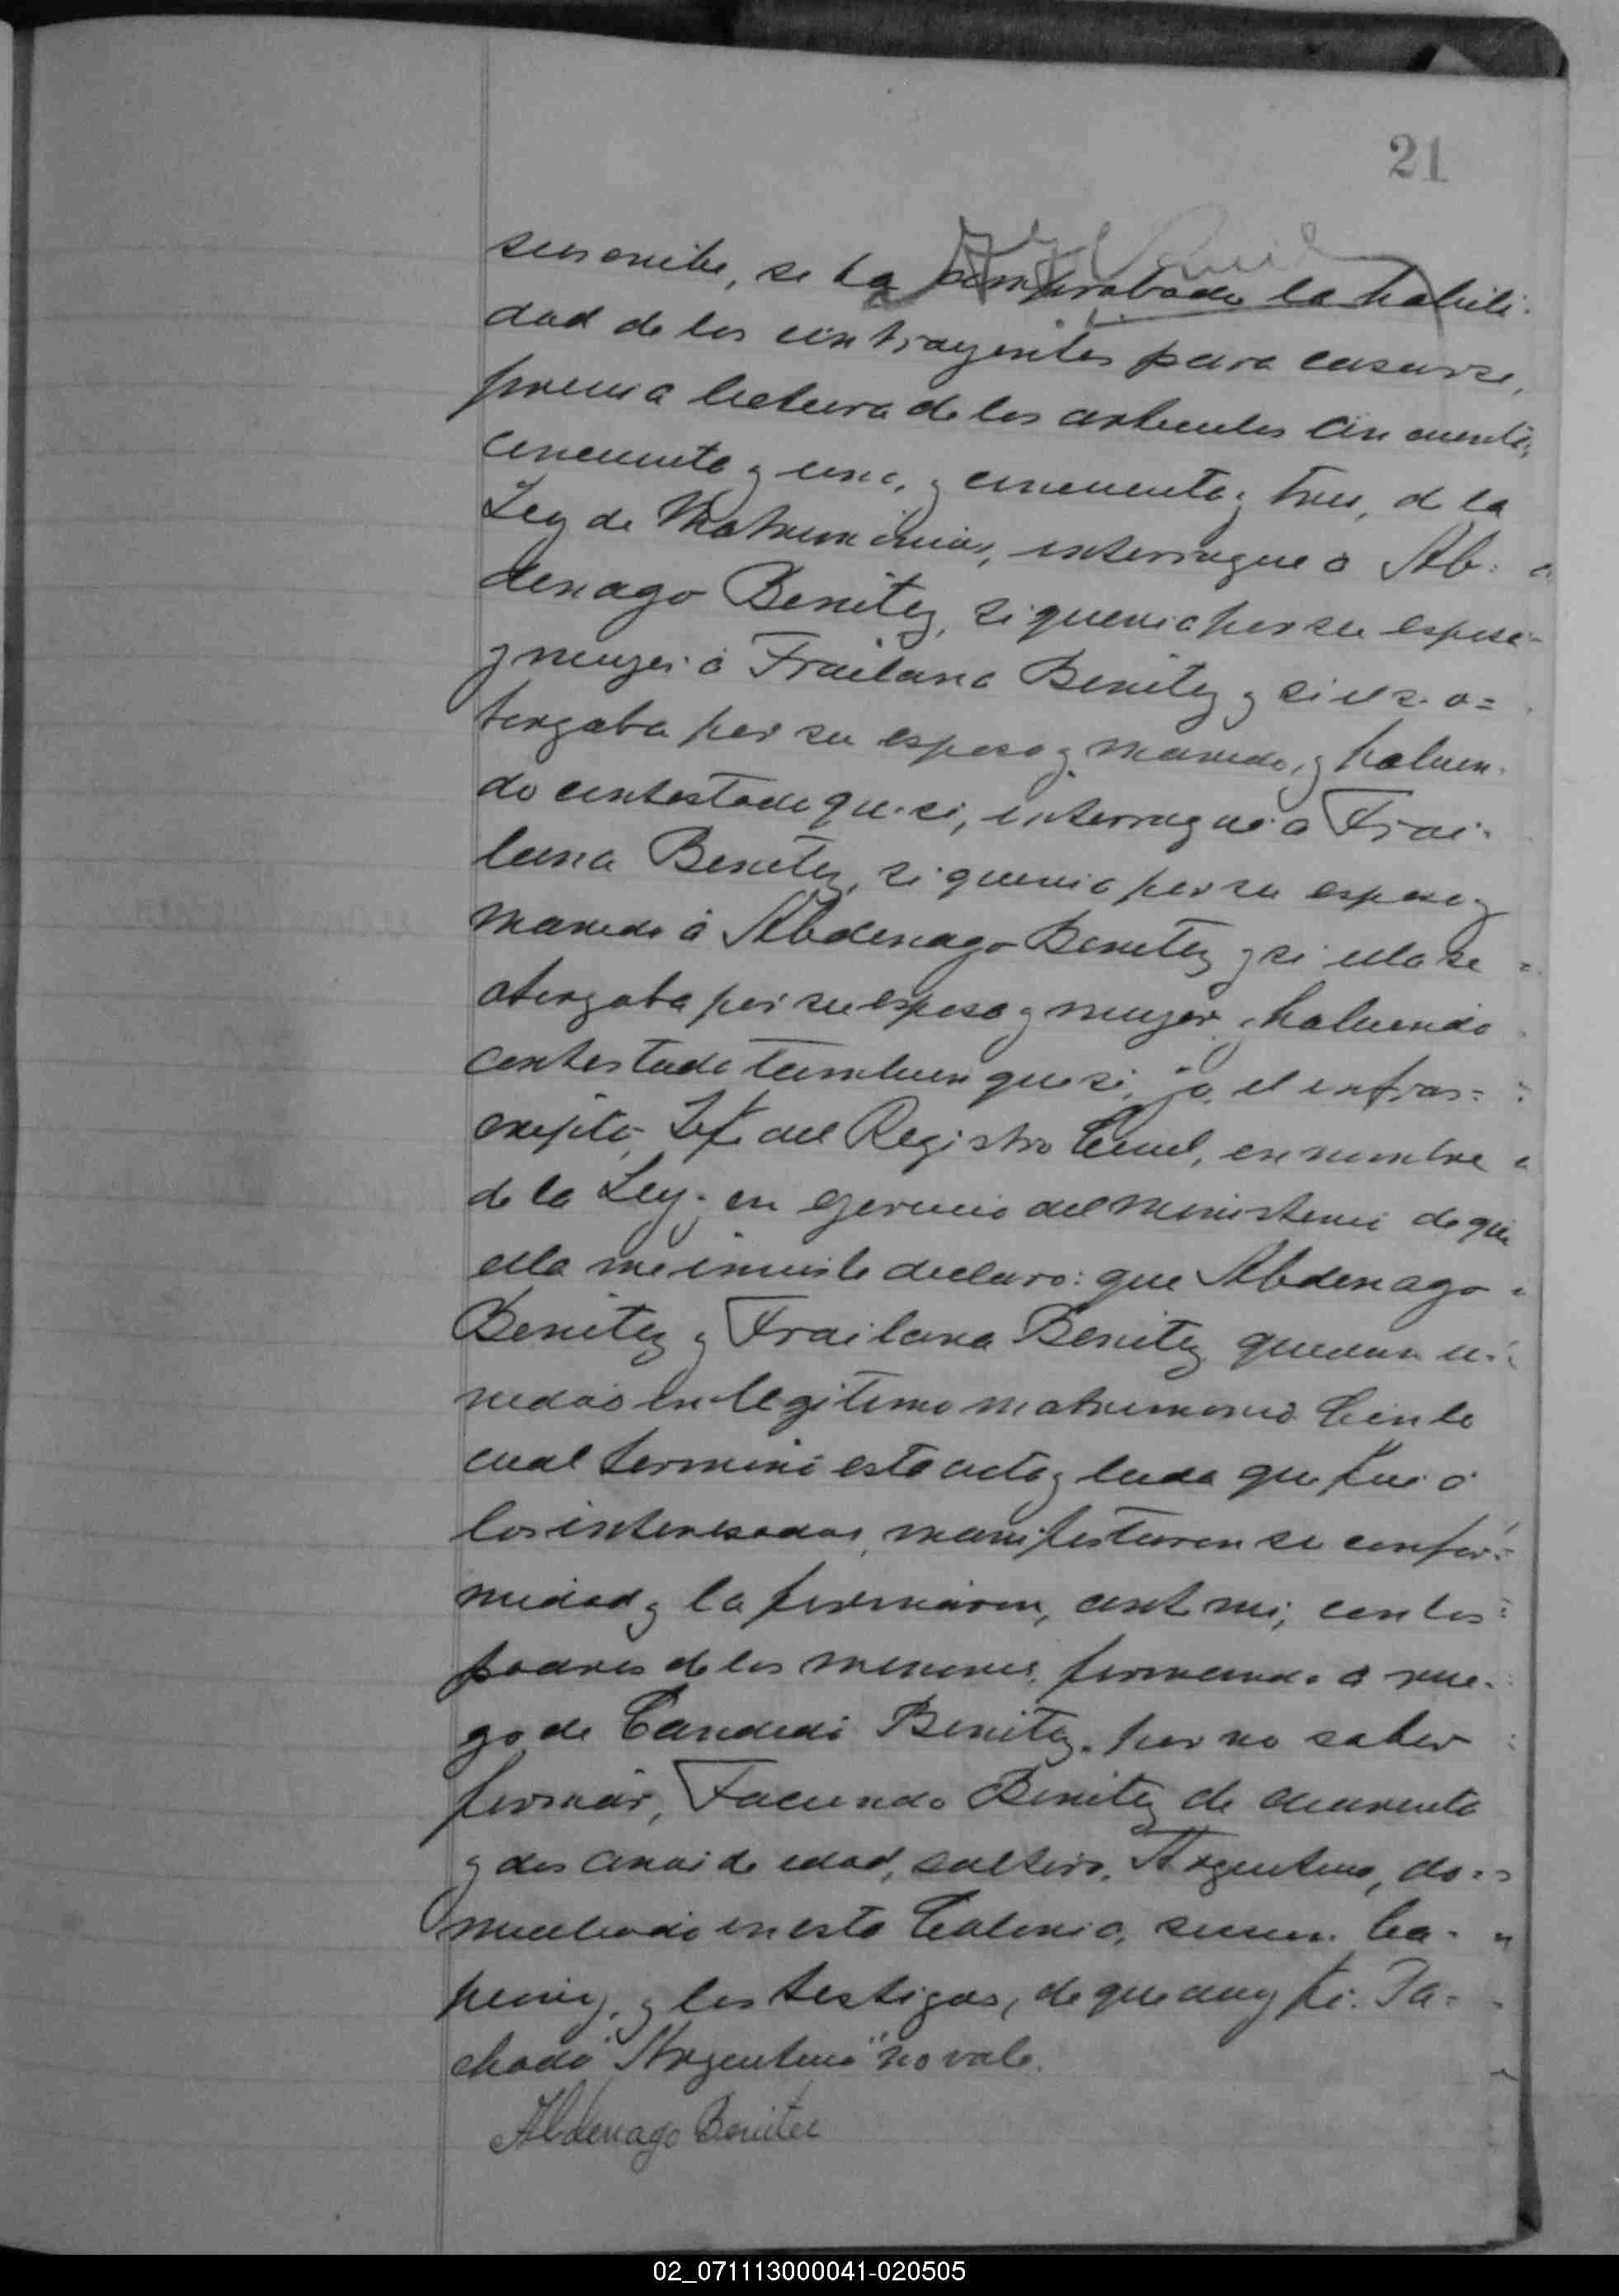 21
suscribe, se ha comprobado la habili-
dad de los contrayentes para casarse,
previa lectura de los articulos cincuenta,
cincuenta y uno, y cincuenta y tres, de la
Ley de Matrimonio, interrogue a Ab-
denago Benitez, si queria por su esposa
y mujer á Frailana Benitez y si el se o=
torgaba por su esposo y marido, y habien-
do contestado que si, interrogué a Frai-
lana Benitez, si queria por su esposo y
marido á Abdenago Benitez y si ella se
otorgaba por su esposa y mujer, habiendo
contestado tambien que si, yo, el infras=
cripto, Jefe del Registro Civil, en nombre
de la Ley, en ejercicio del ministerio de que
ella me inviste declaro: que Abdenago
Benitez y Frailana Benitez quedan u-
nidos en legitimo matrimonio. Con lo
cual terminó esta acta y leida que fué á
los interesados, manifestaron su confor-
midad y la firmaron, ante mi, con los
padres de los menores, firmando a rue-
go de Candida Benitez, por no saber
firmar, Facundo Benitez de cuarenta
y dos años de edad, soltero, Argentino, do-
miciliado en esta Colonia,
y los testigos, de que doy fé. Ta-
chado "Argentino" no vale.
Abdenago Benitez
02_071113000041-020505